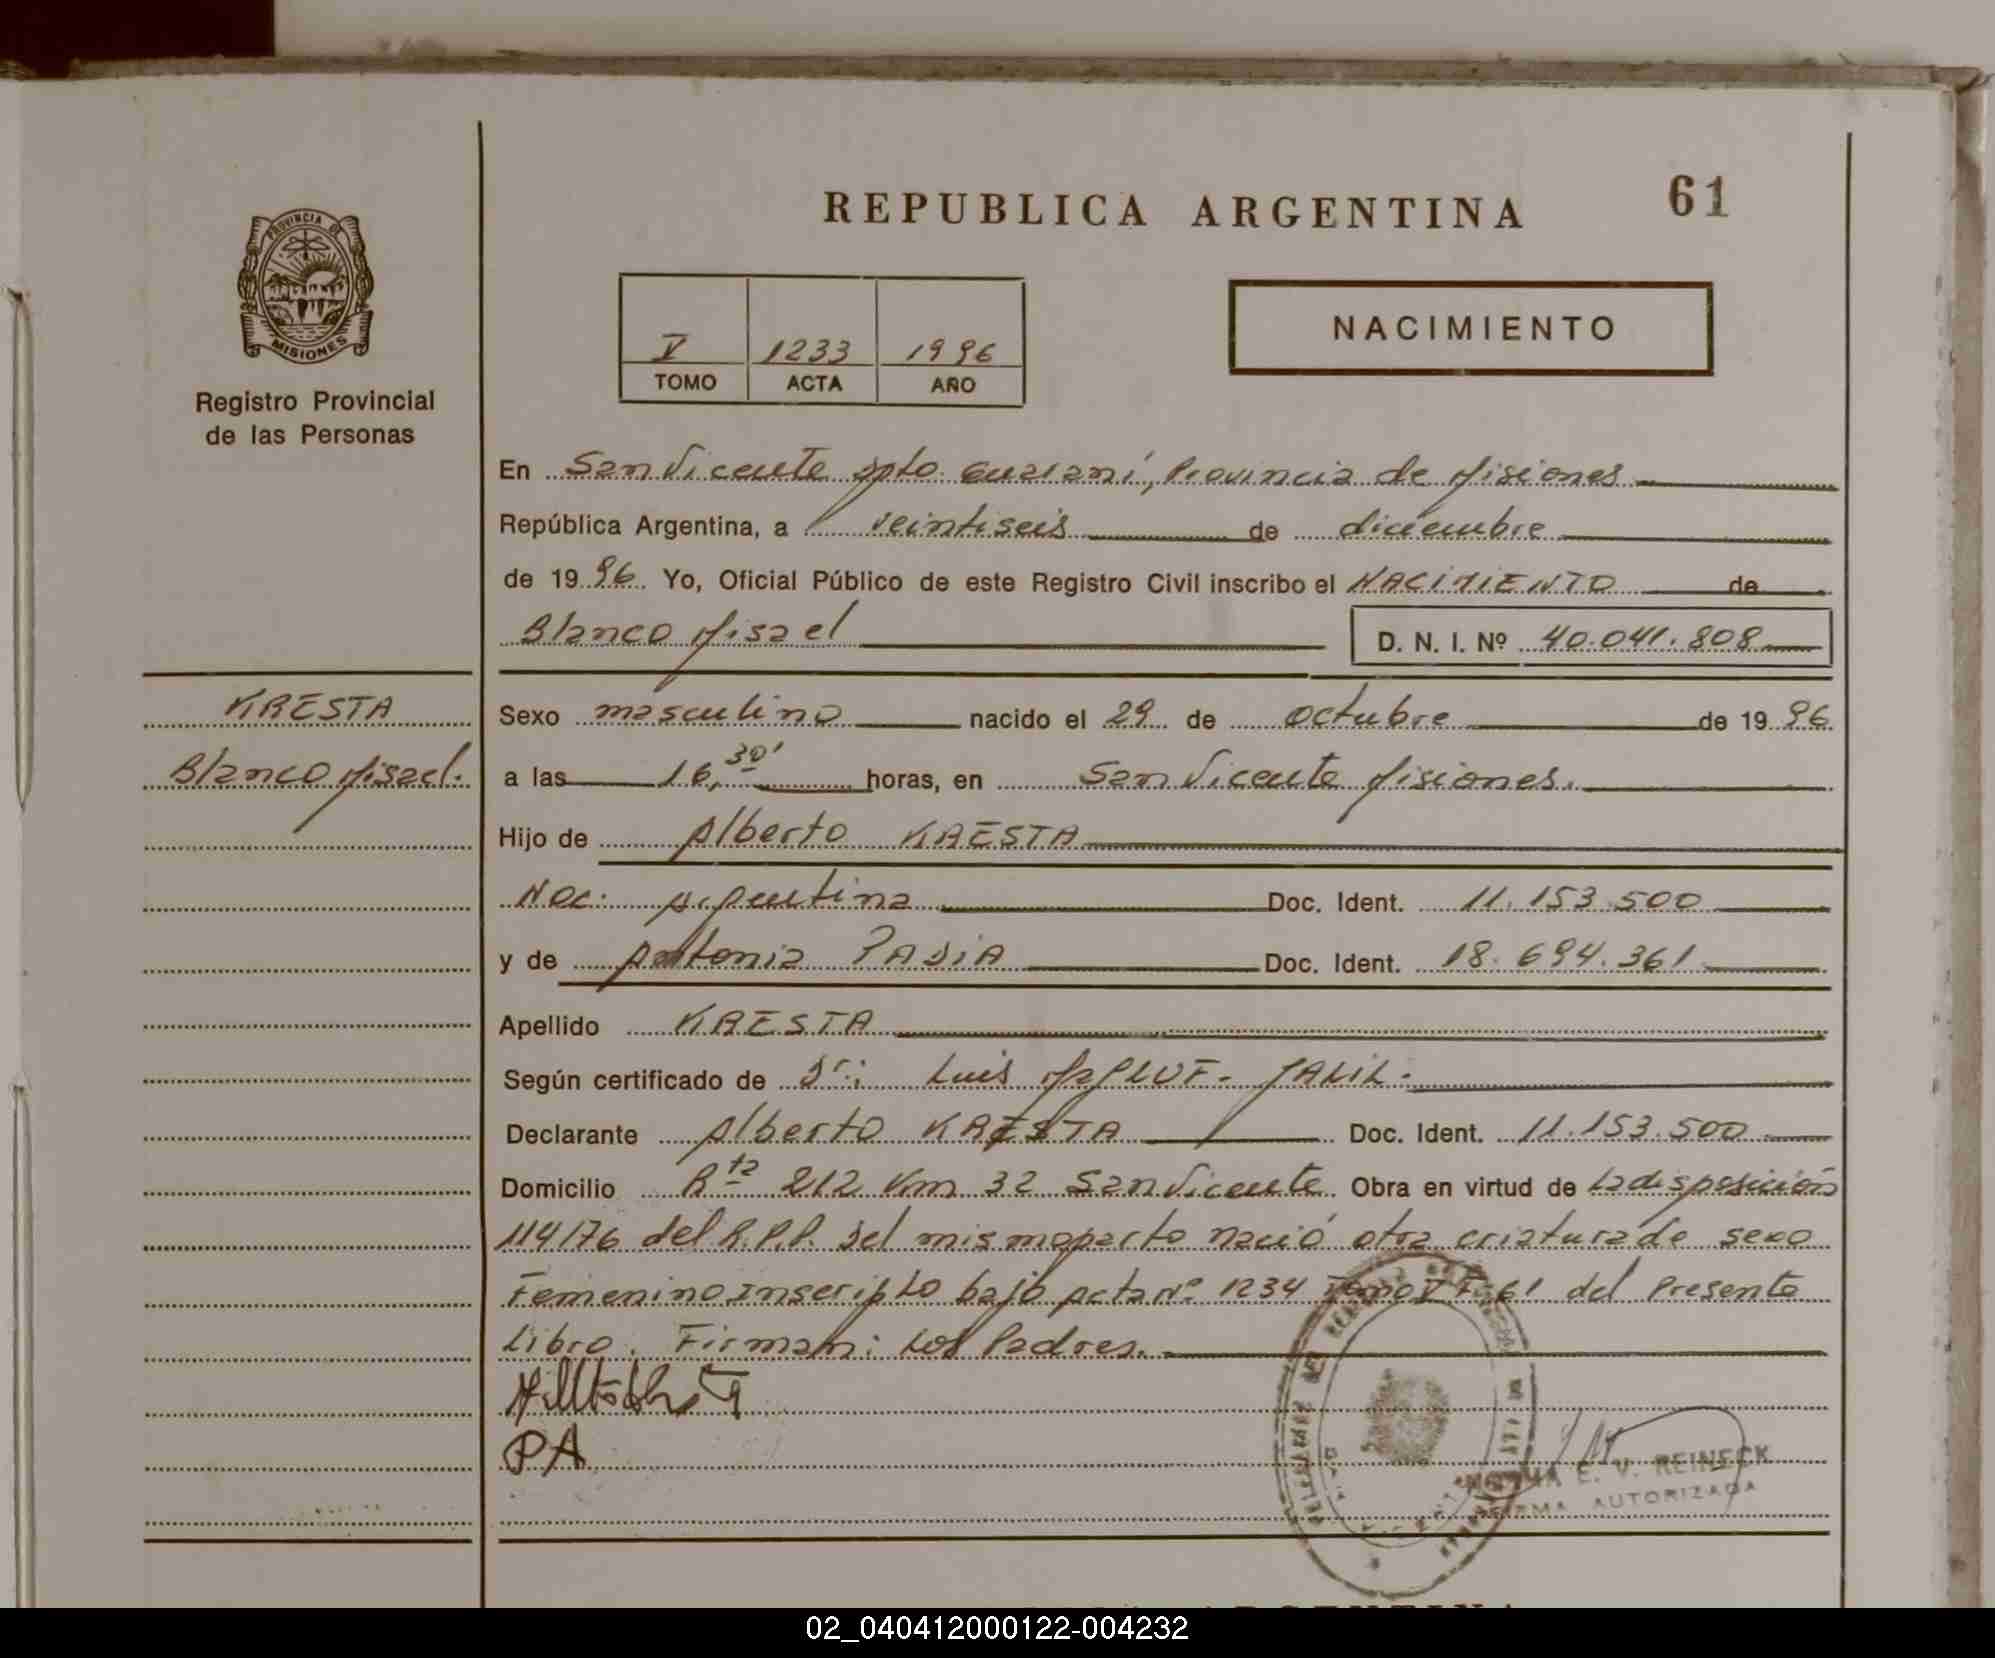 REPUBLICA ARGENTINA
61
PROVINCIA DE
MISIONES
Registro Provincial
de las Personas
V 1233 1996
TOMO ACTA AÑO
NACIMIENTO
En San Vicente Dpto. Guaraní, Provincia de Misiones
República Argentina, a veintiseis de diciembre
de 1996 Yo, Oficial Público de este Registro Civil inscribo el NACIMIENTO de
Blanco Misael D. N. I. Nº 40.041.808
KRESTA
Blanco Misael.
Sexo masculino nacido el 29 de octubre de 1996
a las 16,30' horas, en San Vicente Misiones.
Hijo de Alberto KRESTA
Nac. Argentina Doc. Ident. 11.153.500
y de Antonia Doc. Ident. 18.694.361
Apellido KRESTA
Según certificado de Dr: Luis JALIL.
Declarante Alberto KRESTA Doc. Ident. 11.153.500
Domicilio Rta 212 Km 32 San Vicente Obra en virtud de La disposición
114/76 del R.P.P. Del mismo parto nació otra criatura de sexo
Femenino Inscripto bajo Acta Nº 1234 Tomo V Fº 61 del Presente
Libro. Firman: Los Padres.
PA
E. V. REINECK
FIRMA AUTORIZADA
02_040412000122-004232